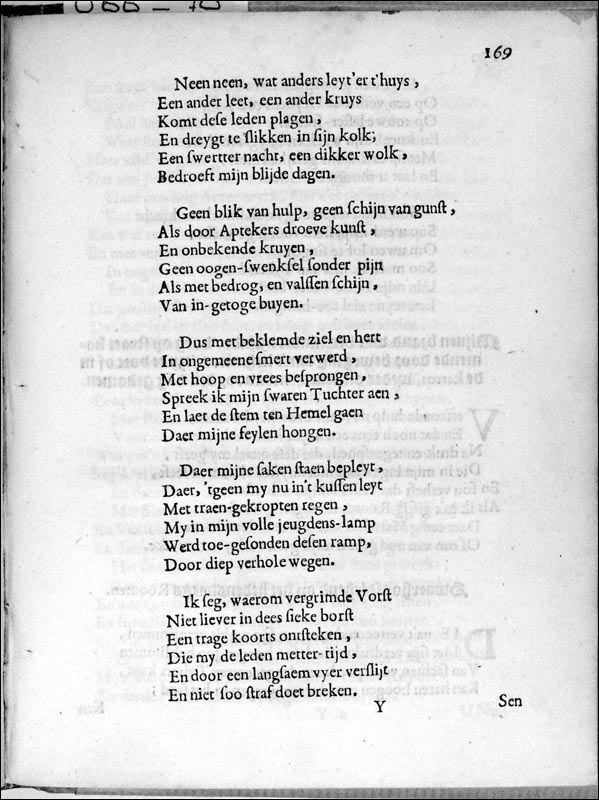 169
Neen neen, wat anders leyt'er t'huys,
Een ander leet, een ander kruys
Komt deſe leden plagen,
En dreygt te ſlikken in ſijn kolk;
Een ſwertter nacht, een dikker wolk,
Bedroeft mijn blijde dagen.
Geen blik van hulp, geen ſchijn van gunſt,
Als door Aptekers droeve kunſt,
En onbekende kruyen,
Geen oogen-ſwenkſel ſonder pijn
Als met bedrog, en valſſen ſchijn,
Van in-getoge buyen.
Dus met beklemde ziel en hert
In ongemeene ſmert verwerd,
Met hoop en vrees beſprongen,
Spreek ik mijn ſwaren Tuchter aen,
En laet de ſtem ten Hemel gaen
Daer mijne feylen hongen.
Daer mijne ſaken ſtaen bepleyt,
Daer, 'tgeen my nu in't kuſſen leyt
Met traen-gekropten regen,
My in mijn volle jeugdens-lamp
Werd toe-geſonden deſen ramp,
Door diep verhole wegen.
Ik ſeg, waerom vergrimde Vorſt
Niet liever in dees ſieke borſt
Een trage koorts ontſteken,
Die my de leden metter-tijd,
En door een langſaem vyer verſlijt
En niet ſoo ſtraf doet breken.
Y
Sen